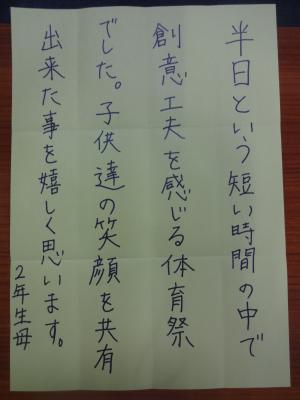 半日という短い時間の中で
創意工夫を感じる体育祭
でした。子供達の笑顔を共有
出来た事を嬉しく思います。
2年生母